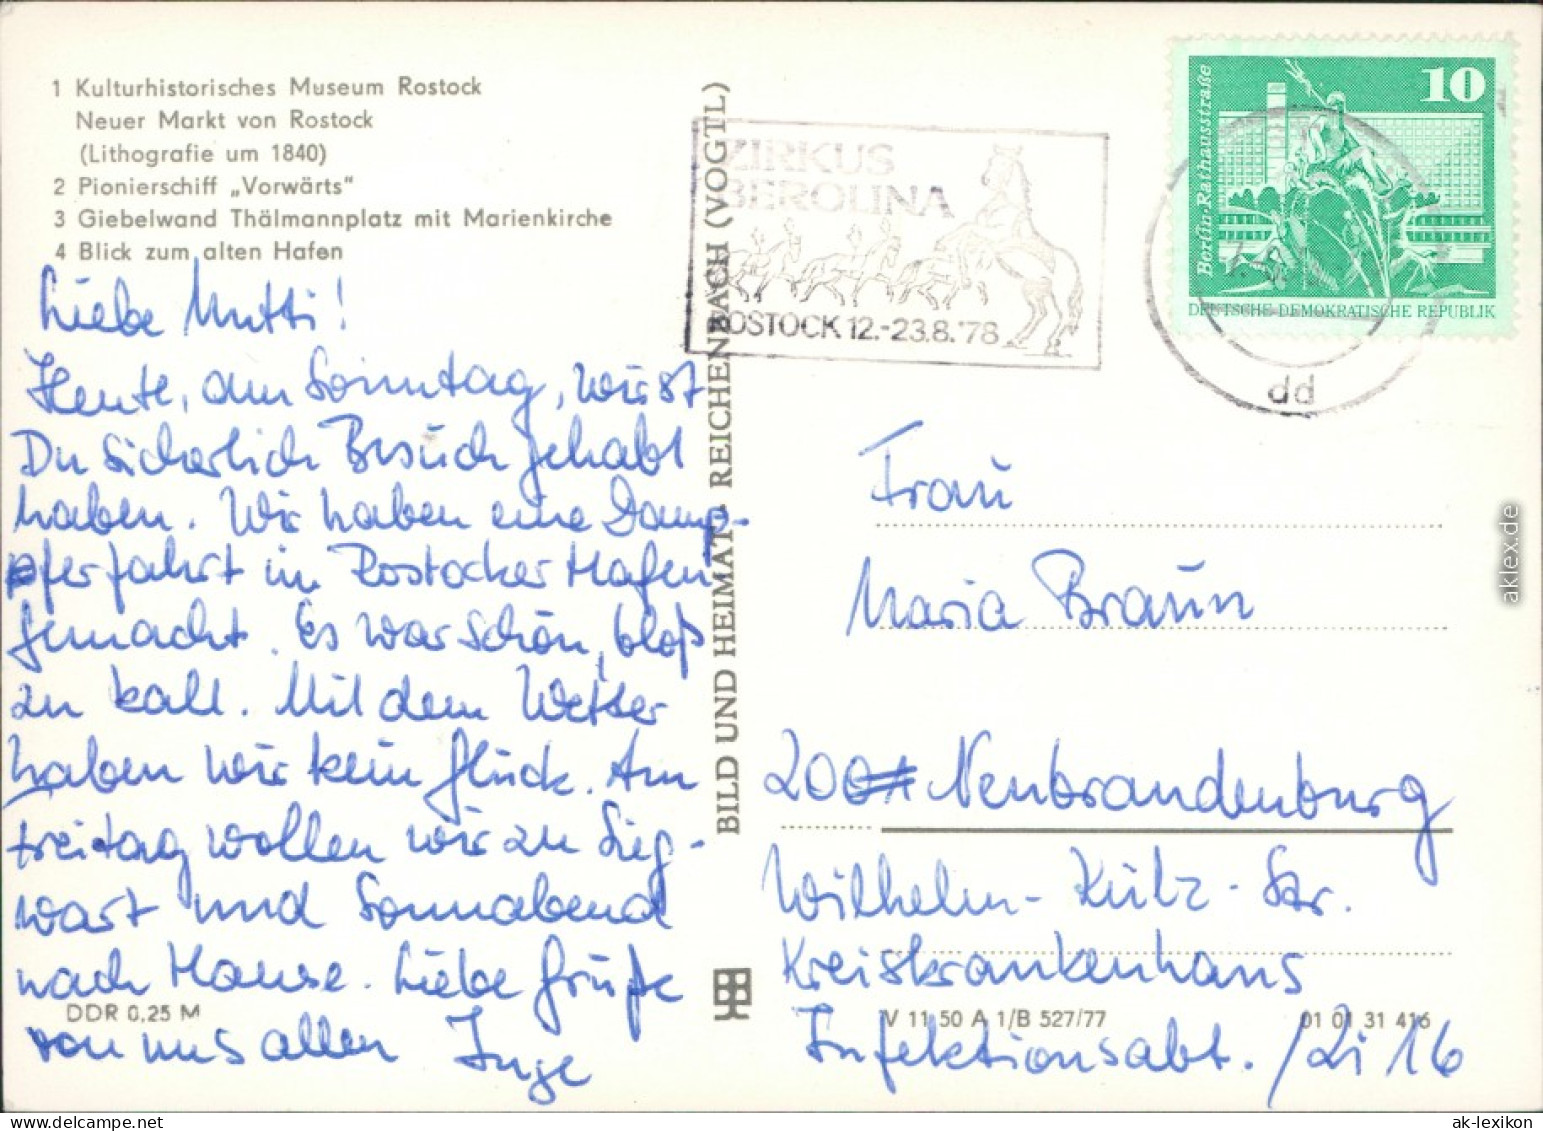 1 Kulturhistorisches Museum Rostock
Neuer Markt von Rostock
(Lithografie um 1840)
2 Pionierschiff „Vorwärts“
3 Giebelwand Thälmannplatz mit Marienkirche
4 Blick zum alten Hafen
Liebe Mutti!
Heute, am Sonntag, wirst
Du sicherlich Besuch gehabt
haben. Wir haben eine Damp-
pferfahrt im Rostocker Hafen
gemacht. Es war schön, bloß
zu kalt. Mit dem Wetter
haben wir kein Glück. Am
Freitag wollen wir zu Sieg-
wart und Sonnabend
nach Hause. Liebe Grüße
von uns allen Inge
DDR 0,25 M
BILD UND HEIMAT REICHENBACH (VOGTL)
ZIRKUS
BEROLINA
ROSTOCK 12.-23.8.'78
10
Berlin-Rathausstraße
DEUTSCHE DEMOKRATISCHE REPUBLIK
dd
Frau
Maria Braun
200 Neubrandenburg
Wilhelm-Külz-Str.
Kreiskrankenhaus
Infektionsabt. / Zi 16
V 11 50 A 1/B 527/77
01 01 31 416
aklex.de
ak-lexikon